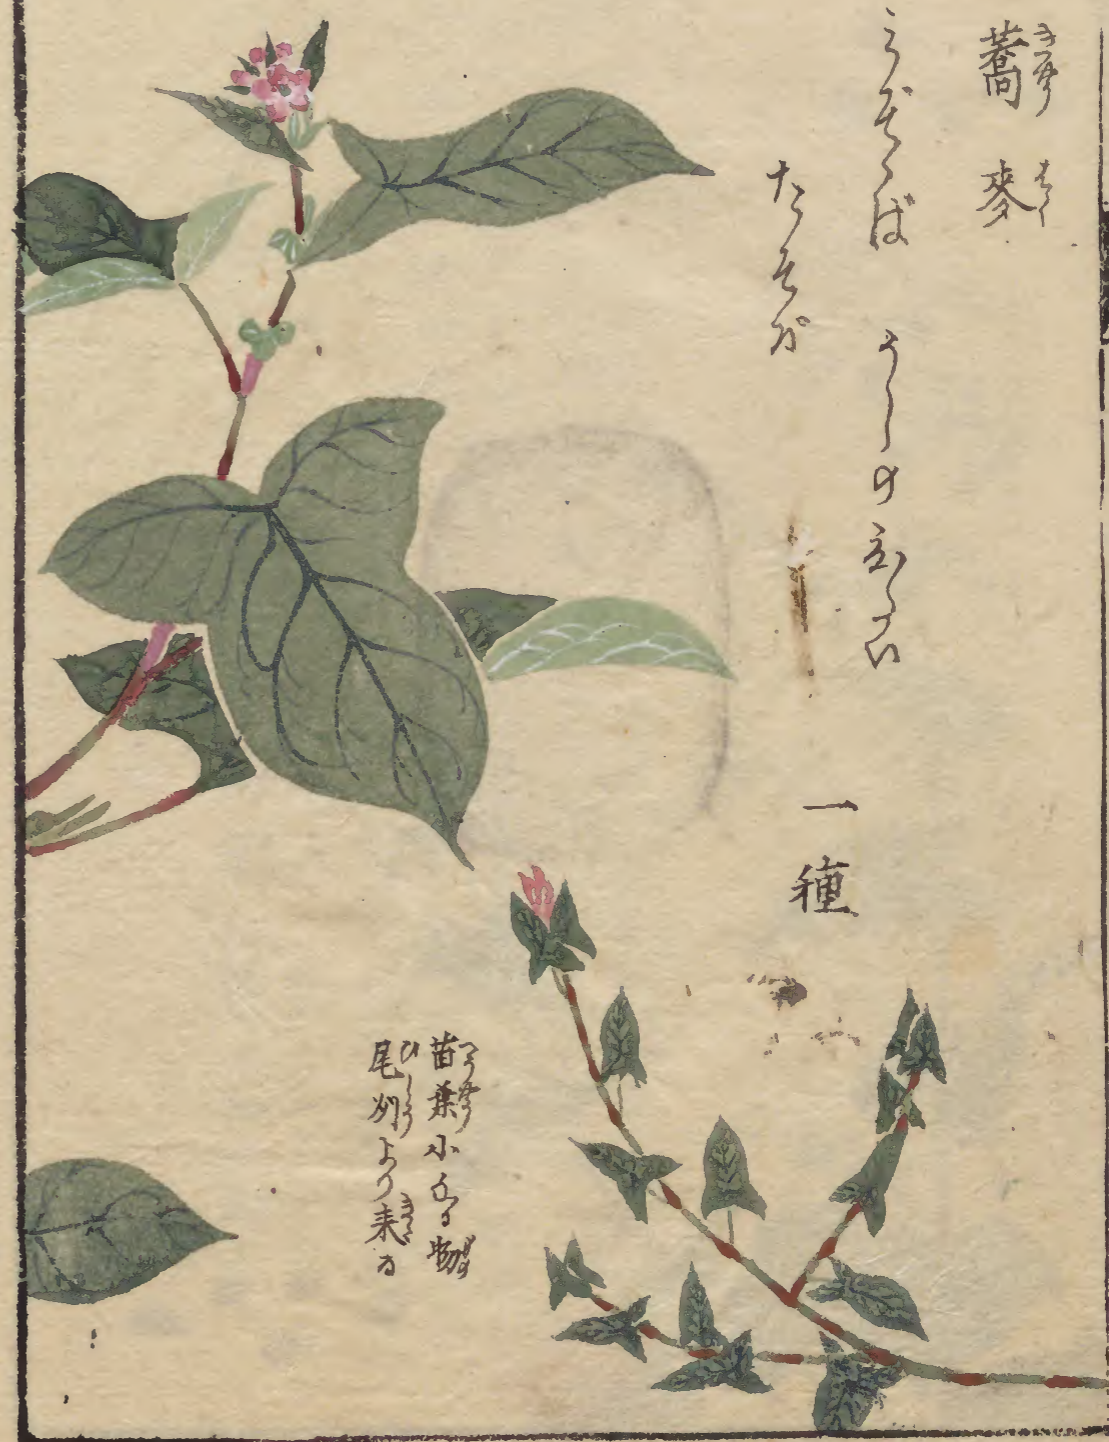 蕎麥
みぞそば うしのひたい
たそば
一種
苗葉小なる物
尾州より来る